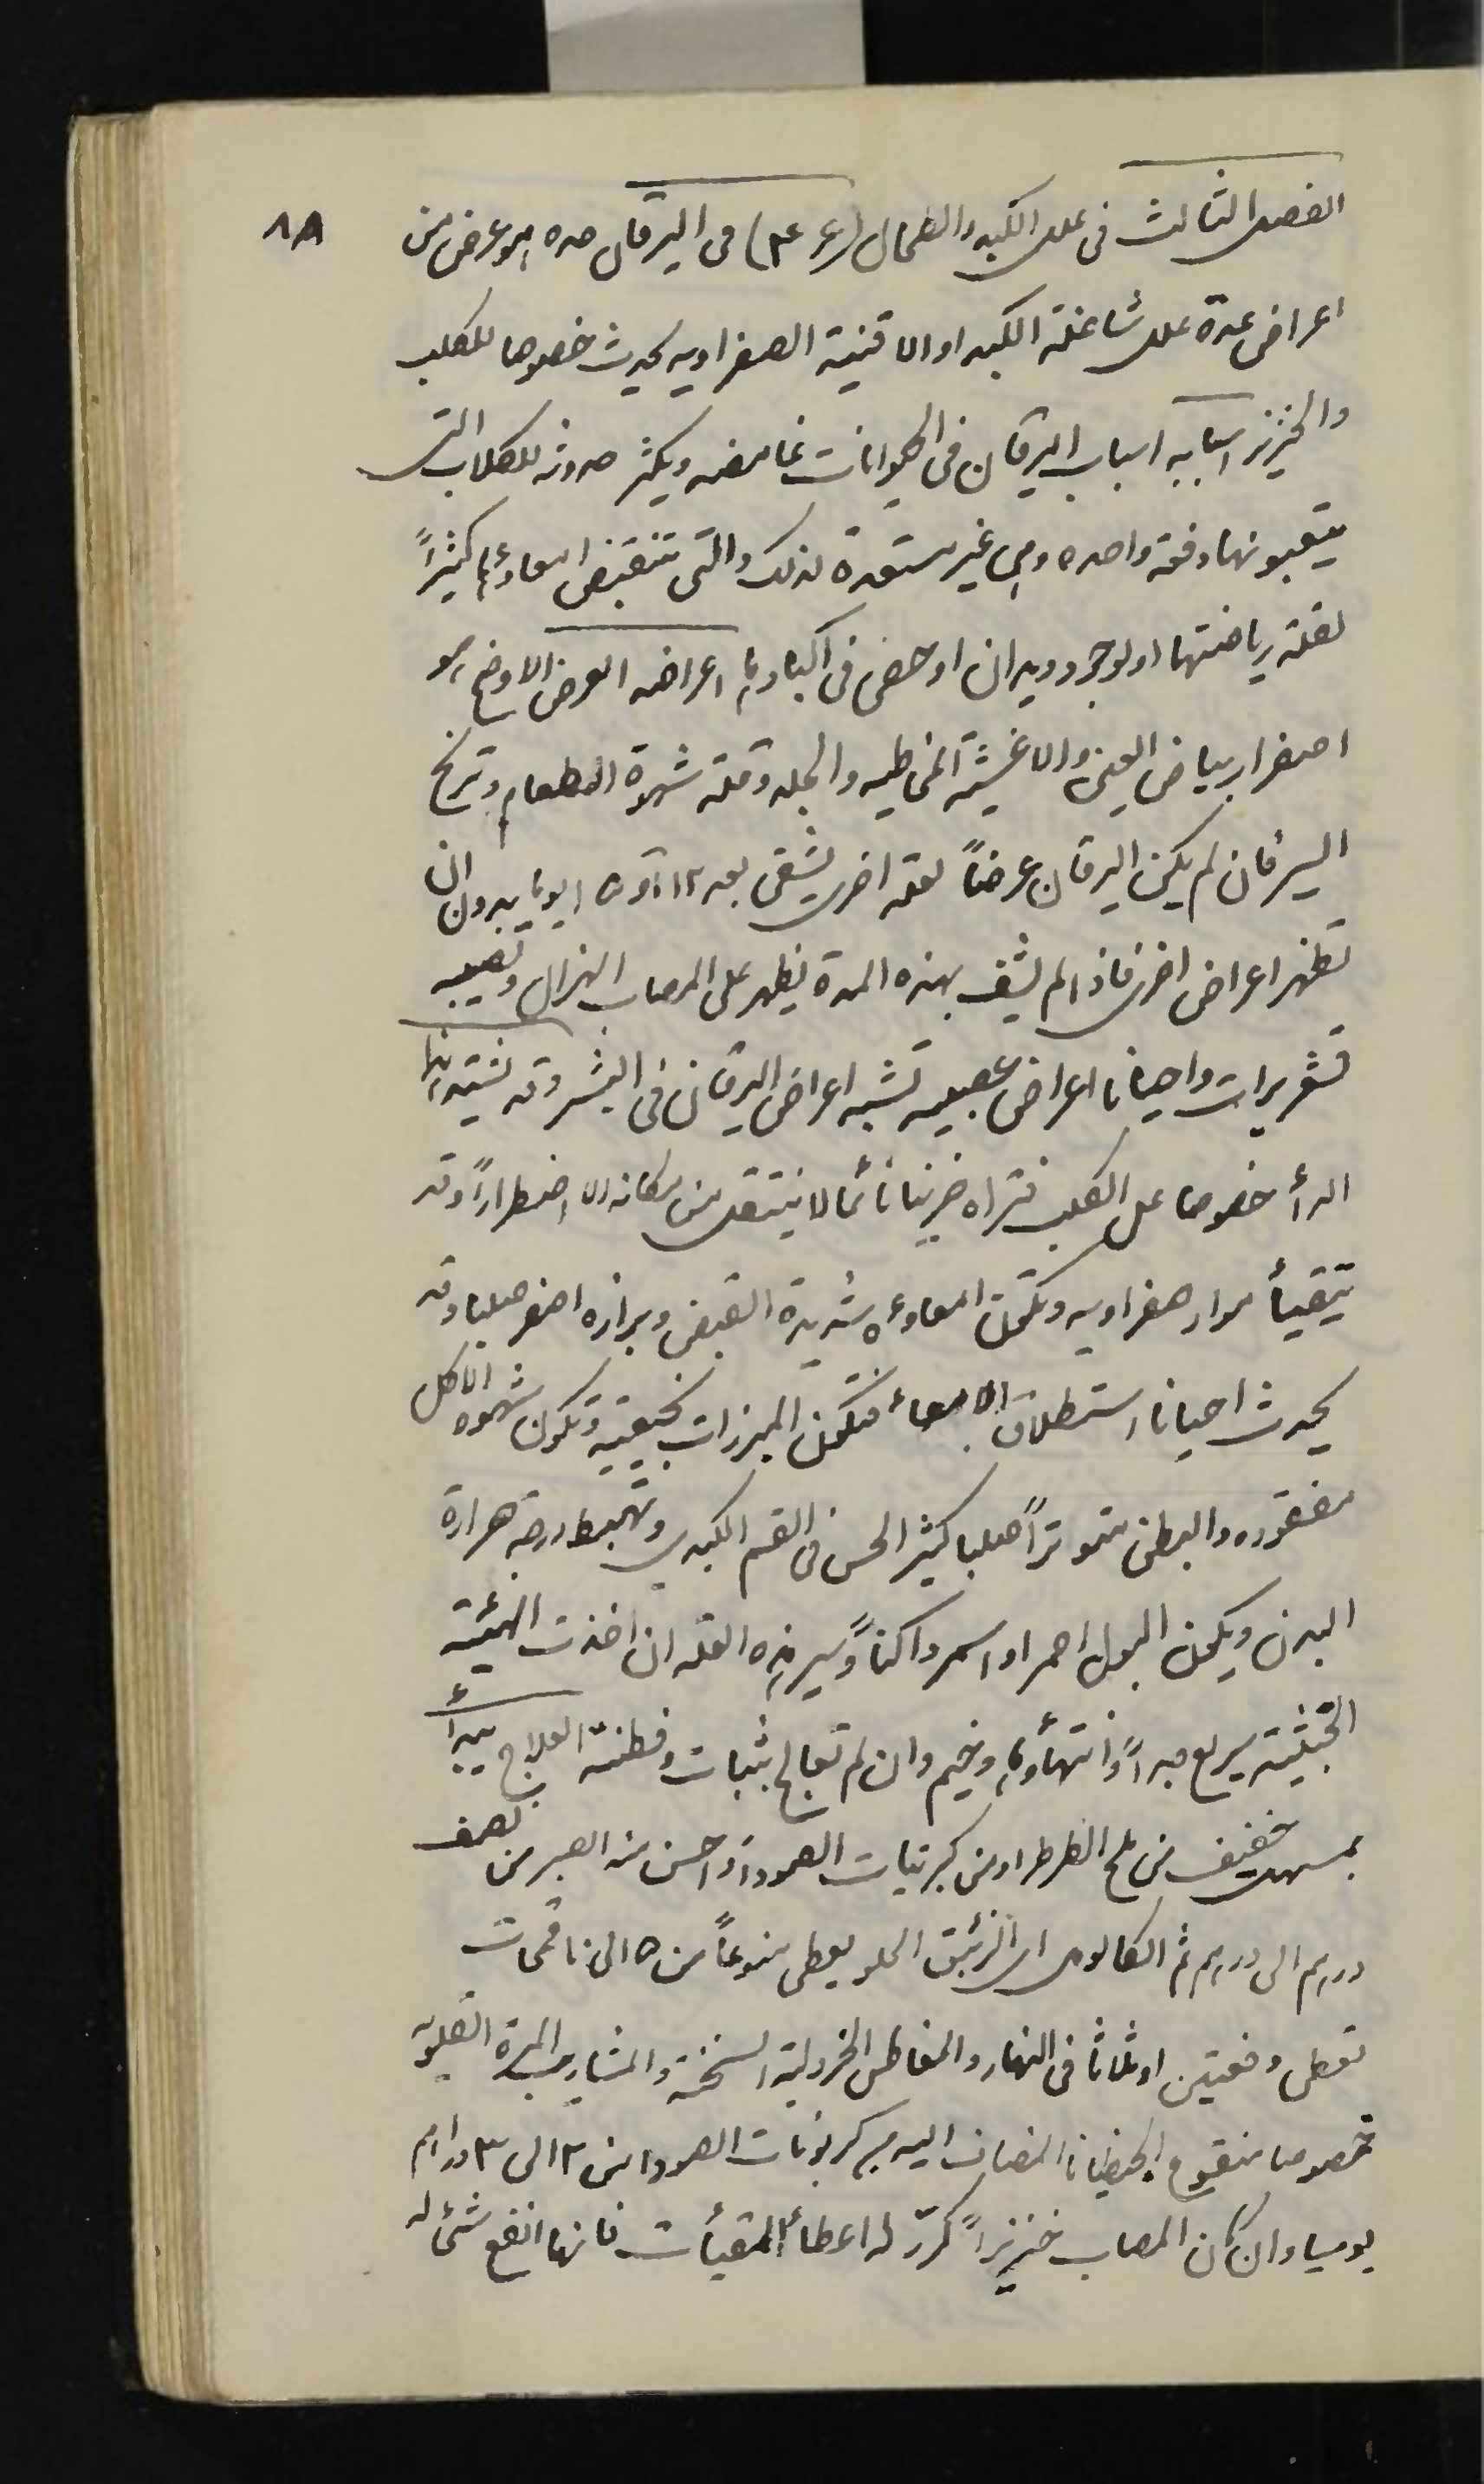 ٨٨
الفصل الثالث فى علل الكبد والطحال (ع ٣) فى اليرقان حده هو عرض من
اعراض عدة علل شاغلة الكبد او الاقنية الصفراويه يحدث خصوصا للكلب
والخنزير اسبابه اسباب اليرقان فى الحيوانات غامضه ويكثر حدوثه للكلاب التى
يتعبونها دفعة واحده وهى غير مستعدة لذلك والتى تنقبض امعاؤها كثيراً
لقلة رياضتها او لوجود ديدان او حصى فى اكبادها اعراضه العرض الاوضح هو
اصفرار بياض العين والاغشية المخاطيه والجلد وقلة شهوة الطعام وترنح
السير فان لم يكن اليرقان عرضاً لعلة اخرى يشفى بعد ١٢ او ١٥ يوما بدون ان
تظهر اعراض اخرى فاذا لم يشف بهذه المدة يظهر على المصاب الهزال وتصيبه
قشعريرات واحيانا اعراض عصبيه تشبه اعراض اليرقان فى البشر وقد يشتد هذا
الدأ خصوصا على الكلب فتراه حزينا نائما لا ينتقل من مكانه الا اضطراراً وقد
يتقيأ مواد صفراويه وتكون امعاوءه شديدة القبض وبرازه اصفر صلبا وقد
يحدث احيانا استطلاق الامعاء فتكون المبرزات نجيعية وتكون شهوه الاكل
مفقوده والبطن متوتراً صلبا كثير الحس فى القسم الكبدى وتهبط درجة حرارة
البدن ويكون البول احمر او اسمر داكناً وسير هذه العله ان اخذت الهيئة
الخبيثة سريع جداً وانتهأوها وخيم وان لم تعالج بثبات وفطنة العلاج يبدأ
بمسهل خفيف من ملح الطرطر او من كبريتات الصودا واحسن منه الصبر من نصف
درهم الى درهم ثم الكالومل اى الزئبق الحلو يعطى منوعاً من ٥ الى ١٠ قمحات
تعطى دفعتين او ثلاثا فى النهار والمغاطس الخردلية السخنة والمشاريب المرة القلويه
خصوصا منقوع الجنطيانا المضاف اليه بى كربونات الصودا من ٢ الى ٣ دراهم
يوميا وان كان المصاب خنزيراً كرّر له اعطأ المقيأت فانها انفع شئ له